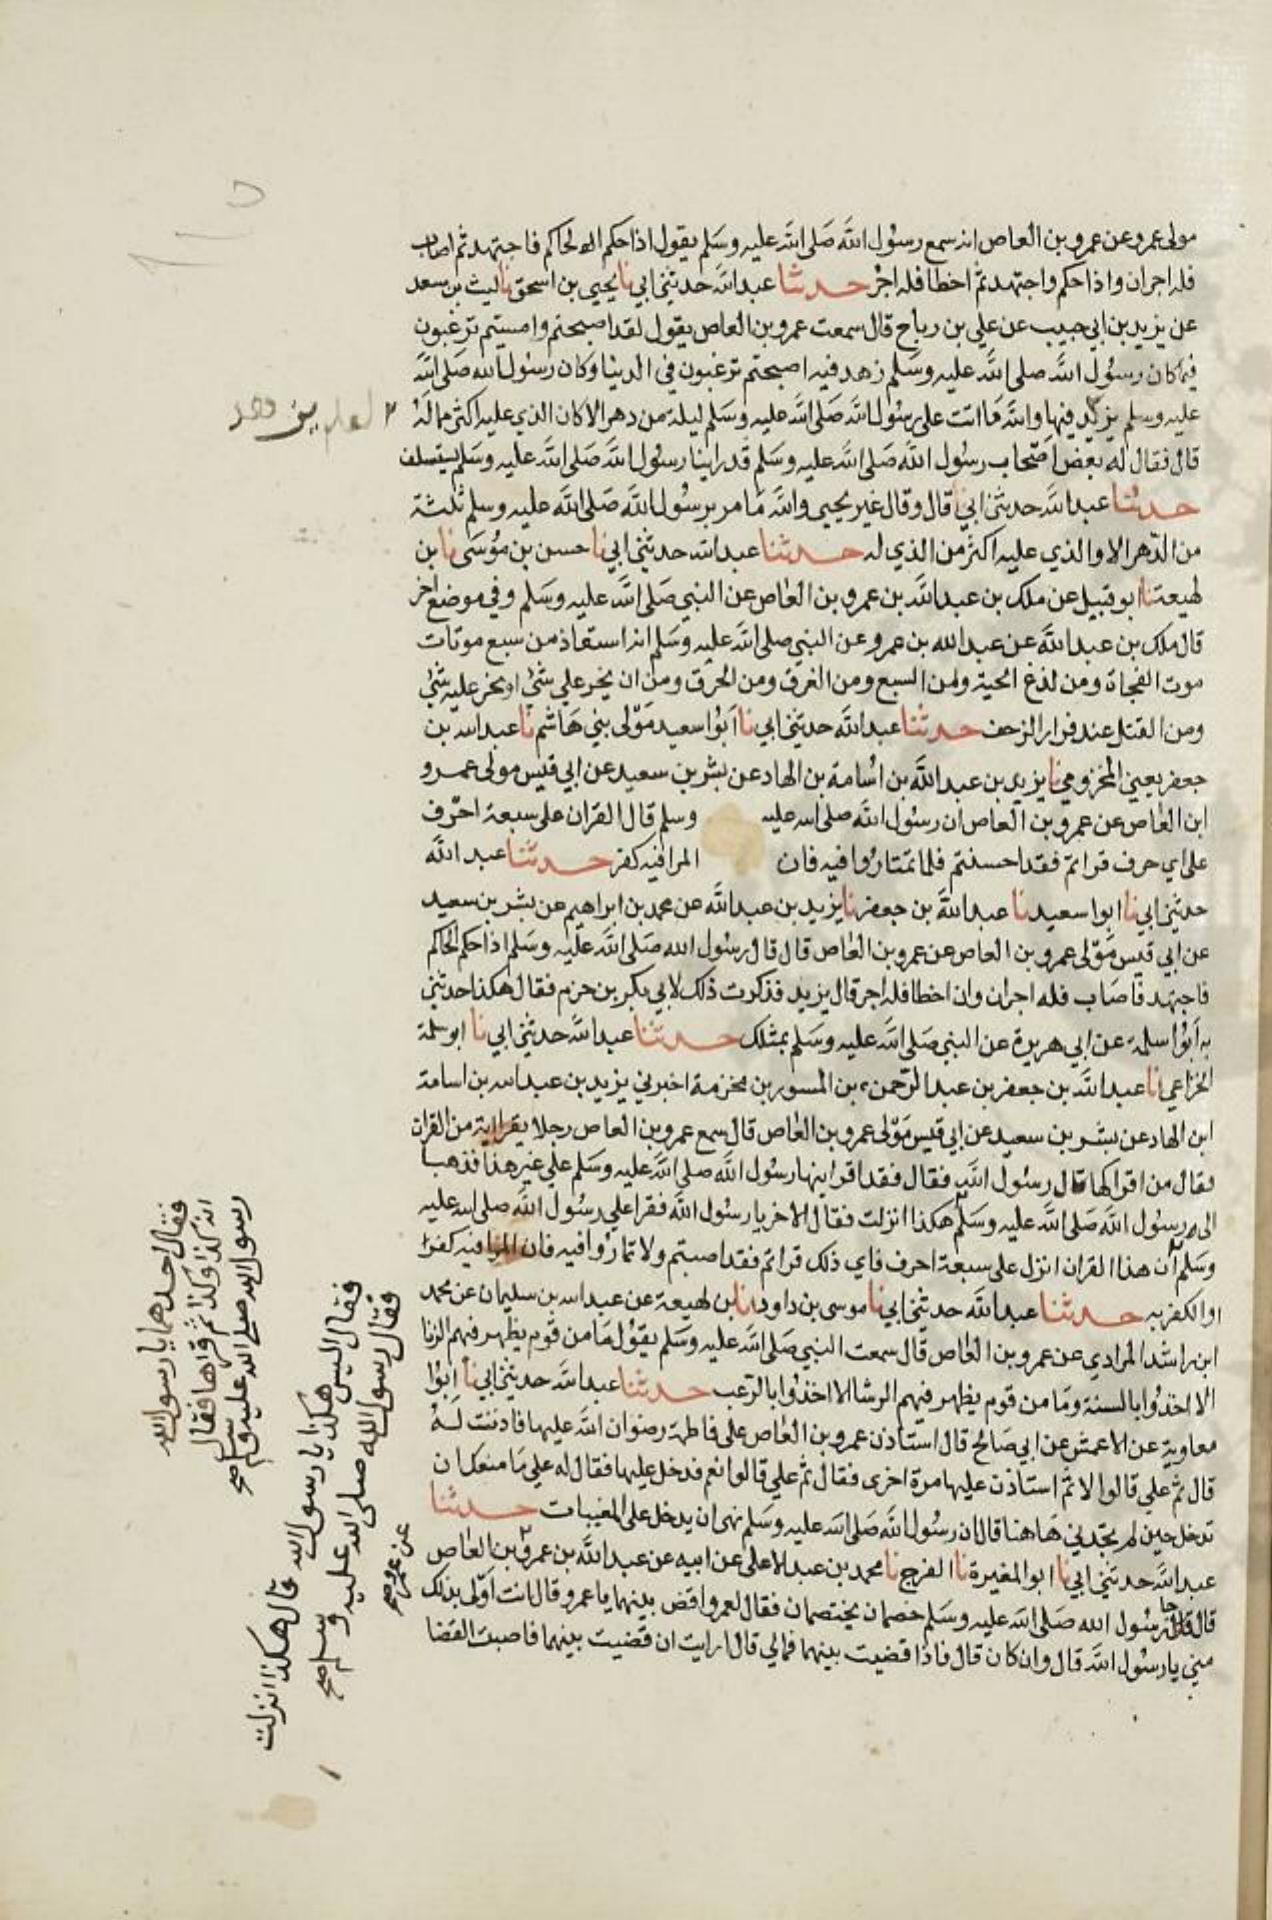 مولى عمرو عن عمرو بن العاص انه سمع رسول الله صلى الله عليه وسلم يقول اذا حكم الحاكم فاجتهد ثم اصاب
فله اجران واذا حكم واجتهد ثم اخطا فله اجر حدثنا عبد الله حدثني ابي نا يحيى بن اسحق نا ليث بن سعد
عن يزيد بن ابي حبيب عن علي بن رباح قال سمعت عمرو بن العاص يقول لقد اصبحتم وامسيتم ترغبون
فيما كان رسول الله صلى الله عليه وسلم زهد فيه اصبحتم ترغبون في الدنيا وكان رسول الله صلى الله
عليه وسلم فيها والله ما اتت على رسول الله صلى الله عليه وسلم ليلة من دهر الا كان الذي عليه اكثر مما له
قال فقال له بعض اصحاب رسول الله صلى الله عليه وسلم قد راينا رسول الله صلى الله عليه وسلم يستسلف
حدثنا عبد الله حدثني ابي نا قال وقال غير يحيى والله ما مر برسول الله صلى الله عليه وسلم ثلثة
من الدهر الا والذي عليه اكثر من الذي له حدثنا عبد الله حدثني ابي نا حسن بن موسى نا بن
لهيعة نا ابو قبيل عن ملك بن عبد الله بن عمرو بن العاص عن النبي صلى الله عليه وسلم وفي موضع اخر
قال ملك بن عبد الله عن عبد الله بن عمرو عن النبي صلى الله عليه وسلم انه استعاذ من سبع موتات
موت الفجاة ومن لدغ الحية ومن السبع ومن الغرق ومن الحرق ومن ان يخر على شئ او يخر عليه شئ
ومن القتل عند فرار الزحف حدثنا عبد الله حدثني ابي نا ابو سعيد مولى بني هاشم نا عبد الله بن
جعفر يعني المخزومي نا يزيد بن عبد الله بن اسامة بن الهاد عن بشر بن سعيد عن ابي قيس مولى عمرو
ابن العاص عن عمرو بن العاص ان رسول الله صلى الله عليه وسلم قال القران على سبعة احرف
على اي حرف قراتم فقد احسنتم فلا تتماروا فيه فان المرا فيه كفر حدثنا عبد الله
حدثني ابي نا ابو سعيد نا عبد الله بن جعفر نا يزيد بن عبد الله عن محمد بن ابراهيم عن بشر بن سعيد
عن ابي قيس مولى عمرو بن العاص عن عمرو بن العاص قال قال رسول الله صلى الله عليه وسلم اذا حكم الحاكم
فاجتهد فاصاب فله اجران وان اخطا فله اجر قال يزيد فذكرت ذلك لابي بكر بن حزم فقال هكذا حدثني
به ابو سلمة عن ابي هريرة عن النبي صلى الله عليه وسلم بمثلك حدثنا عبد الله حدثني ابي نا ابو سلمة
الخزاعي انا عبد الله بن جعفر بن عبد الرحمن بن المسور بن مخزمة اخبرني يزيد بن عبد الله بن اسامة
ابن الهاد عن بشر بن سعيد عن ابي قيس مولى عمرو بن العاص قال سمع عمرو بن العاص رجلا يقرا اية من القران
فقال من اقراكها قال رسول الله فقال فقد اقرانيها رسول الله صلى الله عليه وسلم على غير هذا فذهبا
الى رسول الله صلى الله عليه وسلم هكذا انزلت فقال الاخر يا رسول الله فقرا على رسول الله صلى الله عليه
وسلم ان هذا القران انزل على سبعة احرف فاي ذلك قراتم فقد اصبتم ولا تماروا فيه فان المرا فيه كفرا
او الكفر به حدثنا عبد الله حدثني ابي نا موسى بن داود انا بن لهيعة عن عبد الله بن سليمان عن محمد
ابن راشد المرادي عن عمرو بن العاص قال سمعت النبي صلى الله عليه وسلم يقول ما من قوم يظهر فيهم الزنا
الا اخذوا بالسنة وما من قوم يظهر فيهم الرشا الا اخذوا بالرعب حدثنا عبد الله حدثني ابي نا ابوا
معاوية عن الاعمش عن ابي صالح قال استاذن عمرو بن العاص على فاطمة رضوان الله عليها فاذنت له
قال ثم علي قالوا لا ثم استاذن عليها مرة اخرى فقال ثم علي قالوا نعم فدخل عليها فقال له علي ما منعك ان
تدخل حين لم تجدني هاهنا قال ان رسول الله صلى الله عليه وسلم نهى ان يدخل على المغيبات حدثنا
عبد الله حدثني ابي نا ابو المغيرة نا الفرج نا محمد بن عبد الاعلى عن ابيه عن عبد الله بن عمرو بن العاص
قال جا رسول الله صلى الله عليه وسلم خصمان يختصمان فقال لعمرو اقض بينهما يا عمرو قال انت اولى بذلك
مني يا رسول الله قال وان كان قال فاذا قضيت بينهما فما لي قال ارايت ان قضيت بينهما فاصبت القضا
فقال احدهما يا رسول الله
اية كذا وكذا ثم قراها فقال
رسول الله صلى الله عليه وسلم صح
قال هكذا انزلت
فقال اليس هكذا يا رسول الله
فقال رسول الله صلى الله عليه وسلم صح
عن عمرو صح